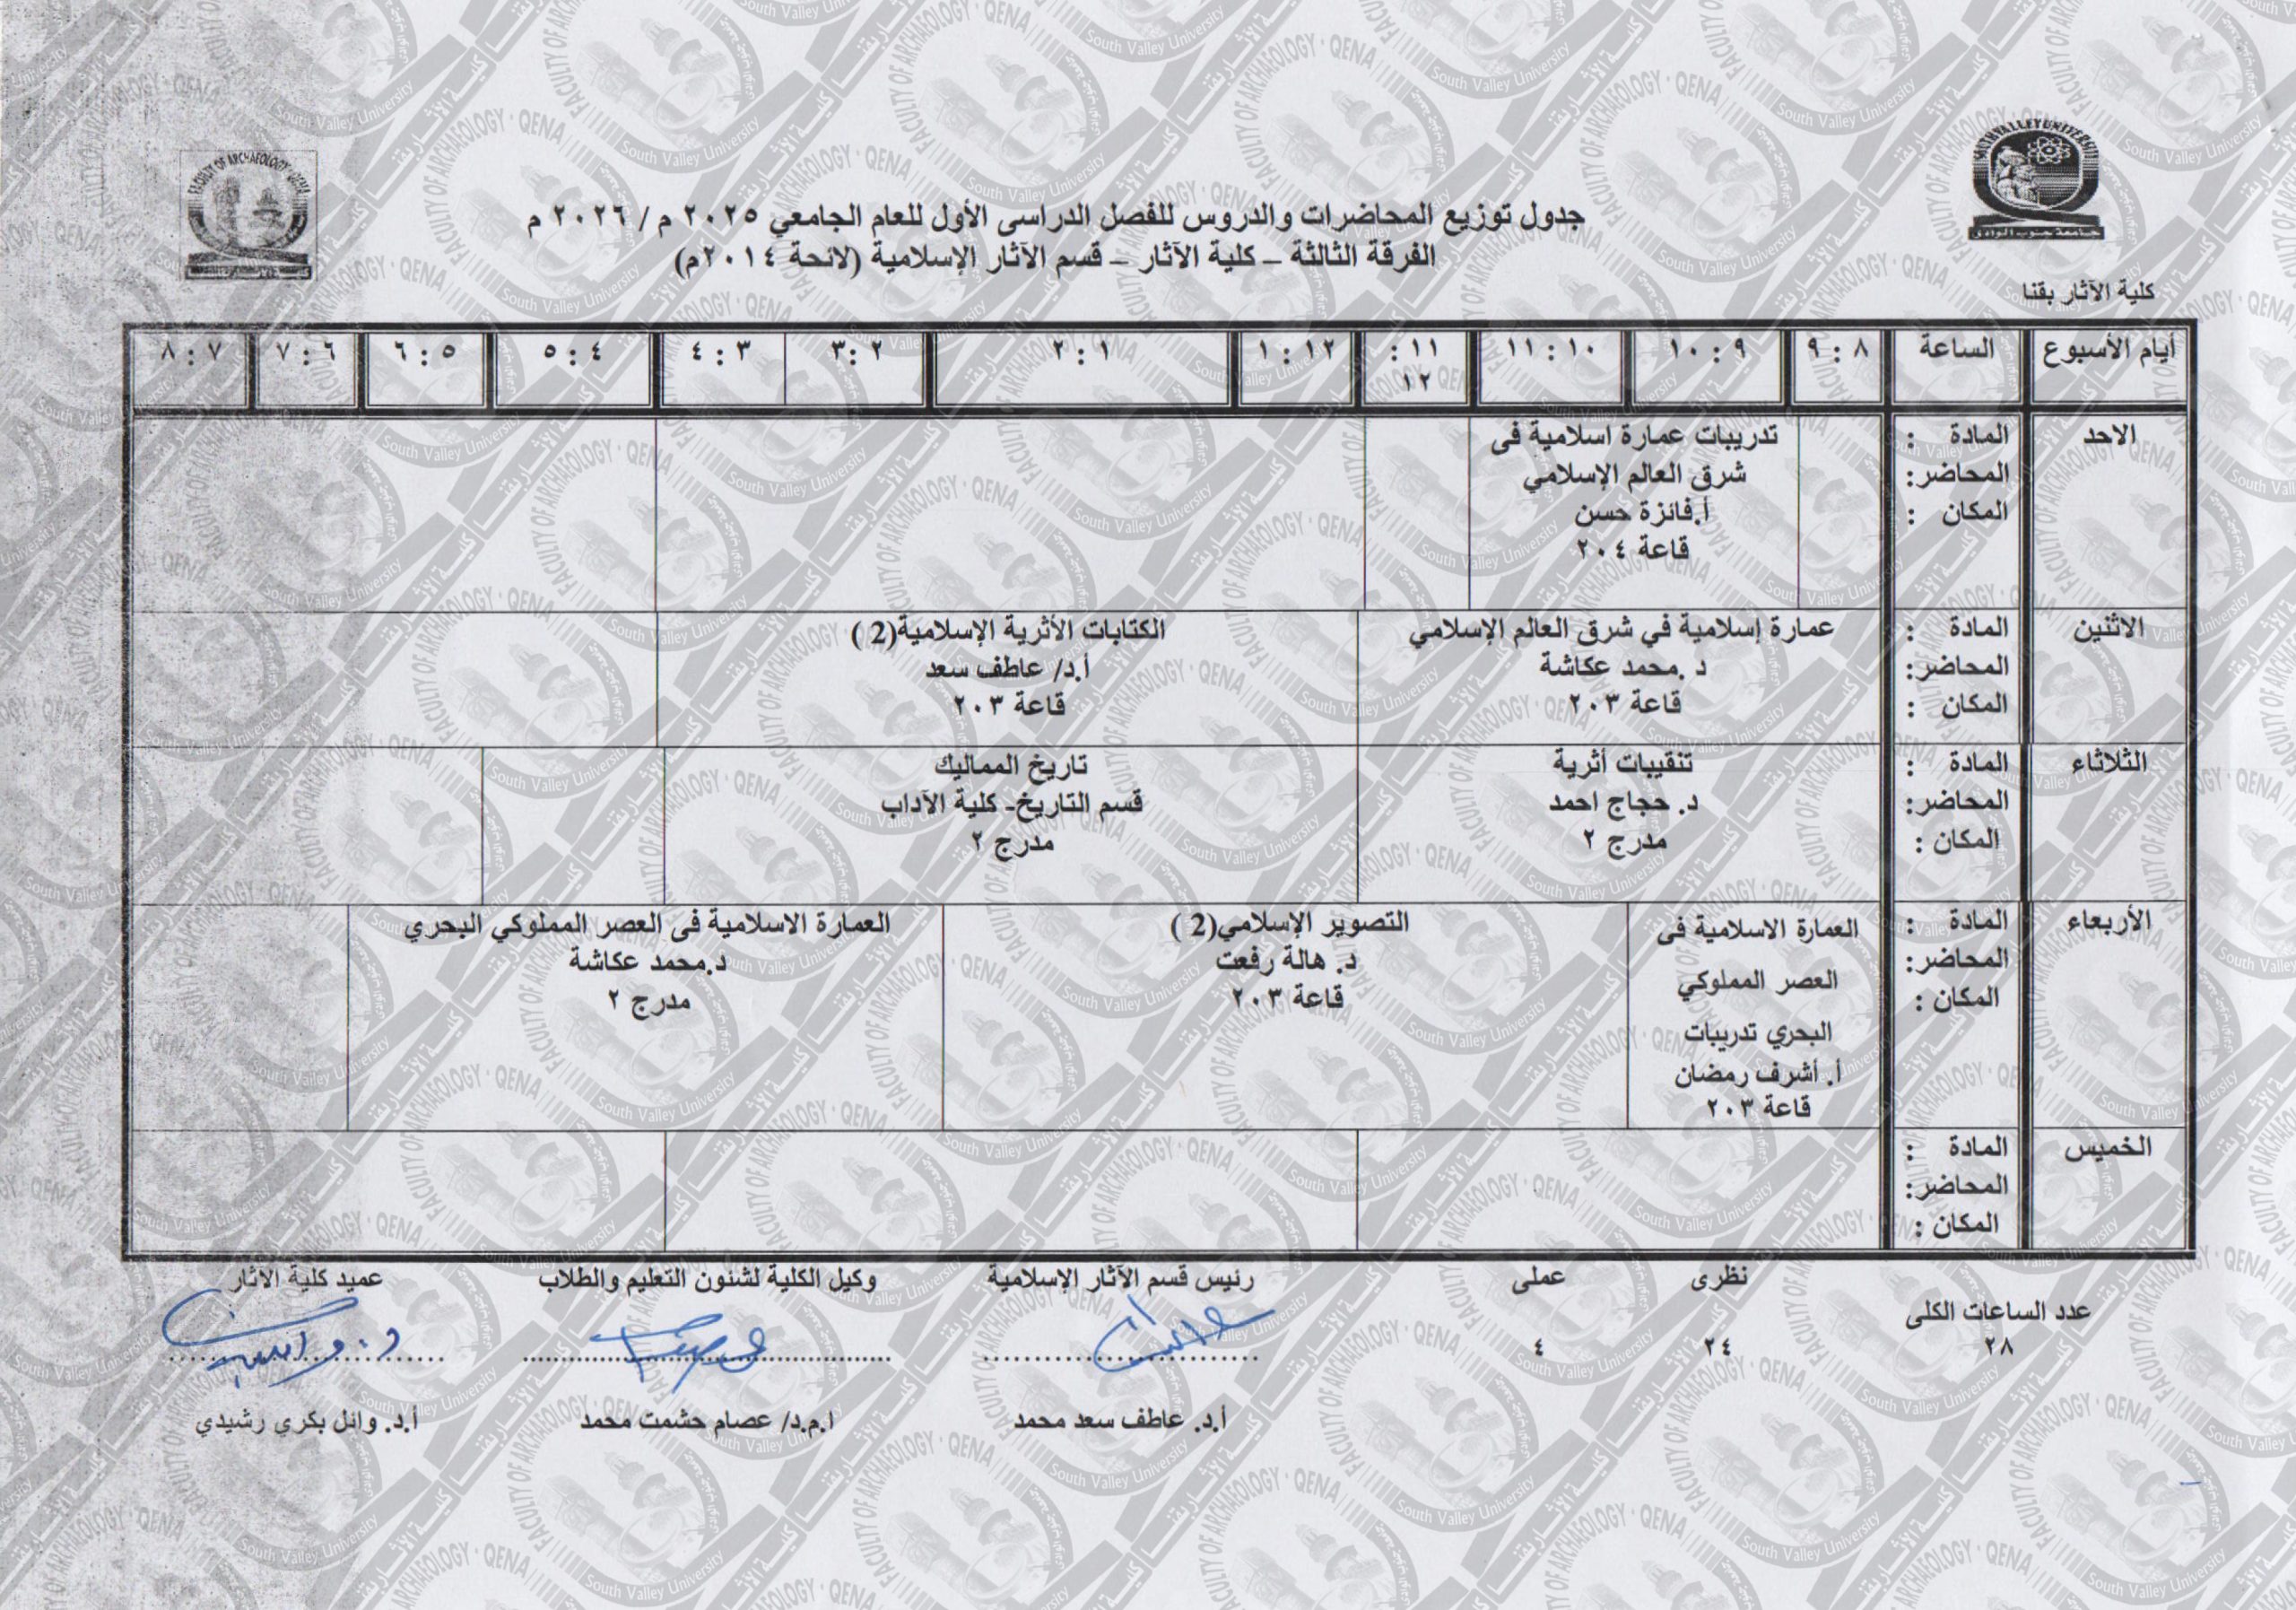 جدول توزيع المحاضرات والدروس للفصل الدراسى الأول للعام الجامعي ٢٠٢٥ م / ٢٠٢٦ م
الفرقة الثالثة – كلية الآثار – قسم الآثار الإسلامية (لائحة ٢٠١٤م)
كلية الآثار بقنا
SOUTH VALLEY UNIVERSITY
جامعة جنوب الوادى
FACULTY OF ARCHAEOLOGY · QENA
أيام الأسبوع الساعة ٨ : ٩ ٩ : ١٠ ١٠ : ١١ ١١ : ١٢ ١٢ : ١ ١ : ٢ ٢ :٣ ٣ : ٤ ٤ : ٥ ٥ : ٦ ٦ : ٧ ٧ : ٨
الاحد
المادة :
المحاضر:
المكان :
تدريبات عمارة اسلامية فى
شرق العالم الإسلامي
أ.فائزة حسن
قاعة ٢٠٤
الاثنين
المادة :
المحاضر:
المكان :
عمارة إسلامية في شرق العالم الإسلامي
د .محمد عكاشة
قاعة ٢٠٣
الكتابات الأثرية الإسلامية(2 )
أ.د/ عاطف سعد
قاعة ٢٠٣
الثلاثاء
المادة :
المحاضر:
المكان :
تنقيبات أثرية
د. حجاج احمد
مدرج ٢
تاريخ المماليك
قسم التاريخ- كلية الآداب
مدرج ٢
الأربعاء
المادة :
المحاضر:
المكان :
العمارة الاسلامية فى
العصر المملوكي
البحري تدريبات
أ. أشرف رمضان
قاعة ٢٠٣
التصوير الإسلامي(2 )
د. هالة رفعت
قاعة ٢٠٣
العمارة الاسلامية فى العصر المملوكي البحري
د.محمد عكاشة
مدرج ٢
الخميس
المادة :
المحاضر:
المكان :
عدد الساعات الكلى
٢٨
نظرى
٢٤
عملى
٤
رئيس قسم الآثار الإسلامية
أ.د. عاطف سعد محمد
وكيل الكلية لشئون التعليم والطلاب
ا.م.د/ عصام حشمت محمد
عميد كلية الاثار
أ.د. وائل بكري رشيدي